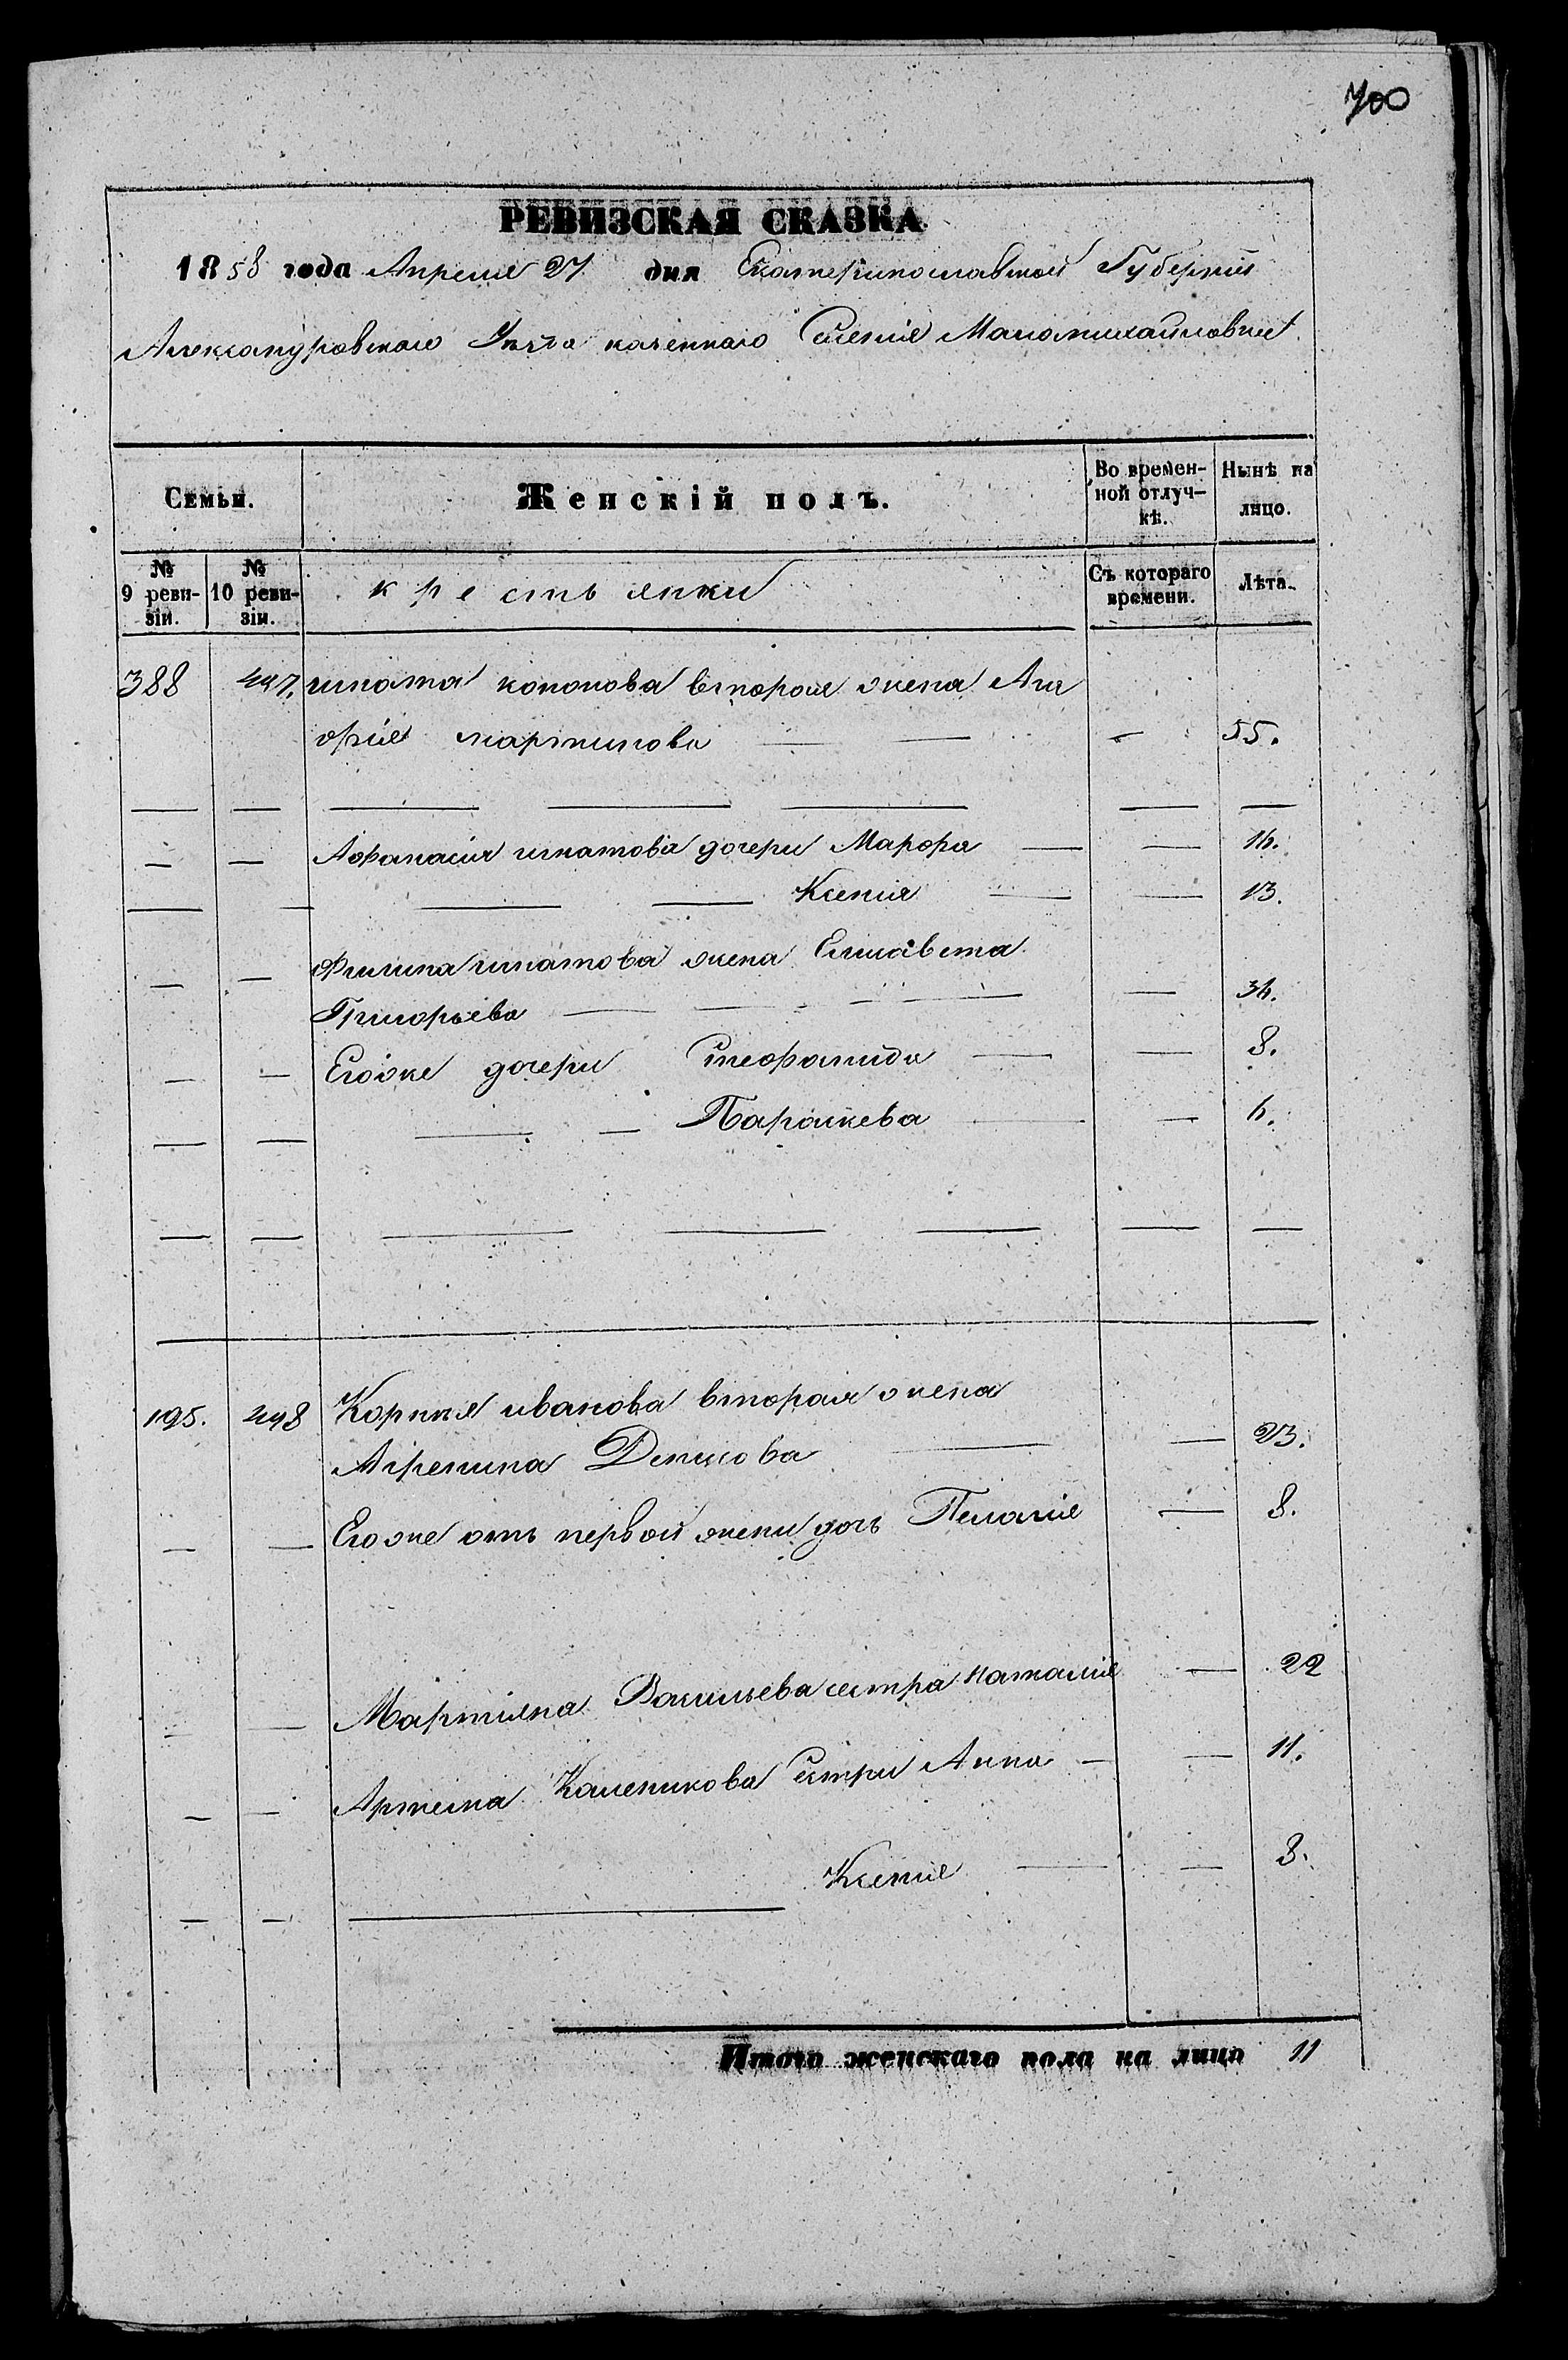 700
РЕВИЗСКАЯ СКАЗКА
1858 года Апреля 27 дня Екатеринославской Губернии
Александровскаго Уезда казеннаго Селения Маломихайловки
Семьи. Женскій полъ. Во времен- Нынѣ на
ной отлуч- лицо.
кѣ.
№ № крестьянки Съ котораго Лѣта.
9 реви- 10 реви- времени.
зіи. зіи.
388 497. игната кононова вторая жена Ага
фия мартинова — — - 55.
— — — — — — —
— — Афанасия игнатова дочери Марфа — — 14.
— — — — Ксения — — 13.
— — Филипа игнатова жена Елисавета
Григорьева — — — — — 34.
— — Егоже дочери Стефанида — — 8.
— — — — Параскева — — 4.
— — — — — — —
195. 498 Корнея иванова вторая жена
Агрепина Денисова — — 23.
— — Егоже отъ первой жени дочь Пелагия — 8.
— — Мартина Васильева сестра наталия — 22
— — Артема Каленикова Сестри Анна — — 11.
— — — Ксения — — 8.
Итого женскаго пола на лицо 11